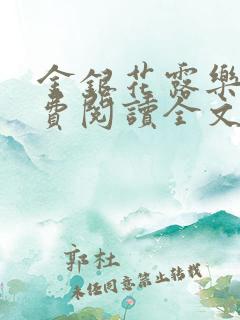 金銀花露樂
費閱讀全文
郭杜
未经同意禁止转载